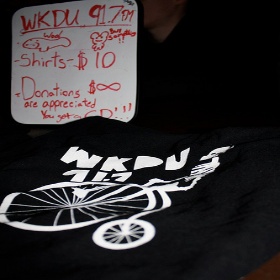 WKDU 91.7 FM
-Shirts-$10
-Donations $∞
are appreciated
You get a CD!!!
WKDU
91.7